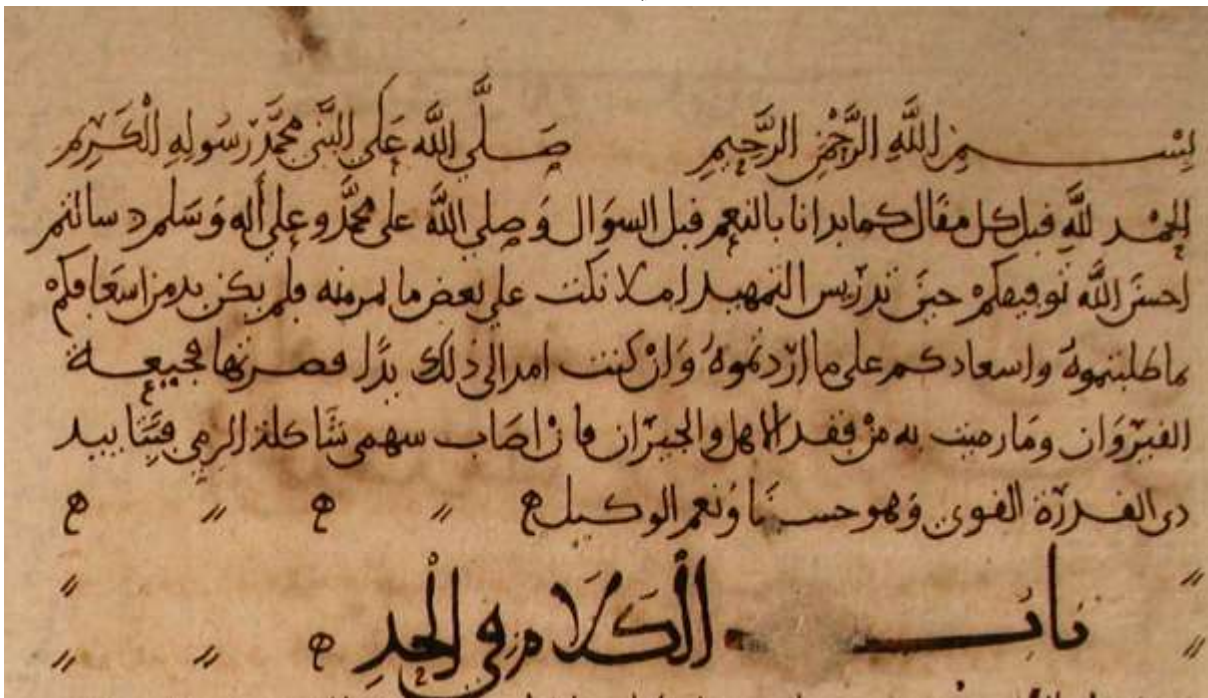 بِسْمِ اللَّهِ الرَّحْمَٰنِ الرَّحِيمِ صَلَّى اللَّه عَلَى النَّبي مُحَمَّد رَسُولِهِ الْكَرِيم
الحمْد للَّهِ قبل كل مقال كما بدانا بالنعم قبل السوَال وَصلى اللَّه على محمَّد وعلى أله وَسَلم سالتم
احسنَ اللَّه توفيقكم حين تدريس التمهيد املا نكت على بعض ما لمر منه فلم يكن بد من اسعافكم
ما طلبتموهُ واسعادكم على ما ارْدتموهُ وَانْ كنت امد الى ذلك يدًا قصرتها فجيعة
القيرَوَان ومَا رميت به منْ فقد الاهل والجيرَان فانْ اصَاب سهمى شَاكلة الرمي فبتَاييد
ذى القدرَة القوى وَهو حسبنَا وَنعم الوكيل
بابُ الْكَلَام في الْحدِ